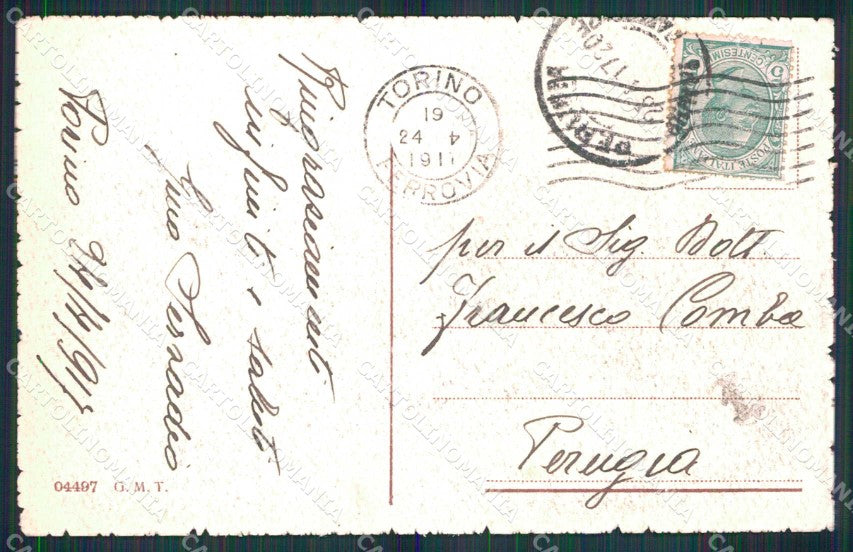 Torino 24/4/917
Ringraziamenti
infiniti e saluti
TORINO
19
24 4
1911
FERROVIA
CENTESIMI
POSTE ITALIANE
PERUGIA
per il Sig Dott.
Francesco Comba
Perugia
04497 G. M. T.
CARTOLINOMANIA